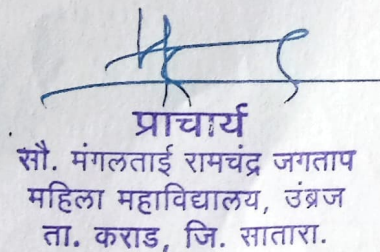 प्राचार्य
सौ. मंगलताई रामचंद्र जगताप
महिला महाविद्यालय, उंब्रज
ता. कराड, जि. सातारा.